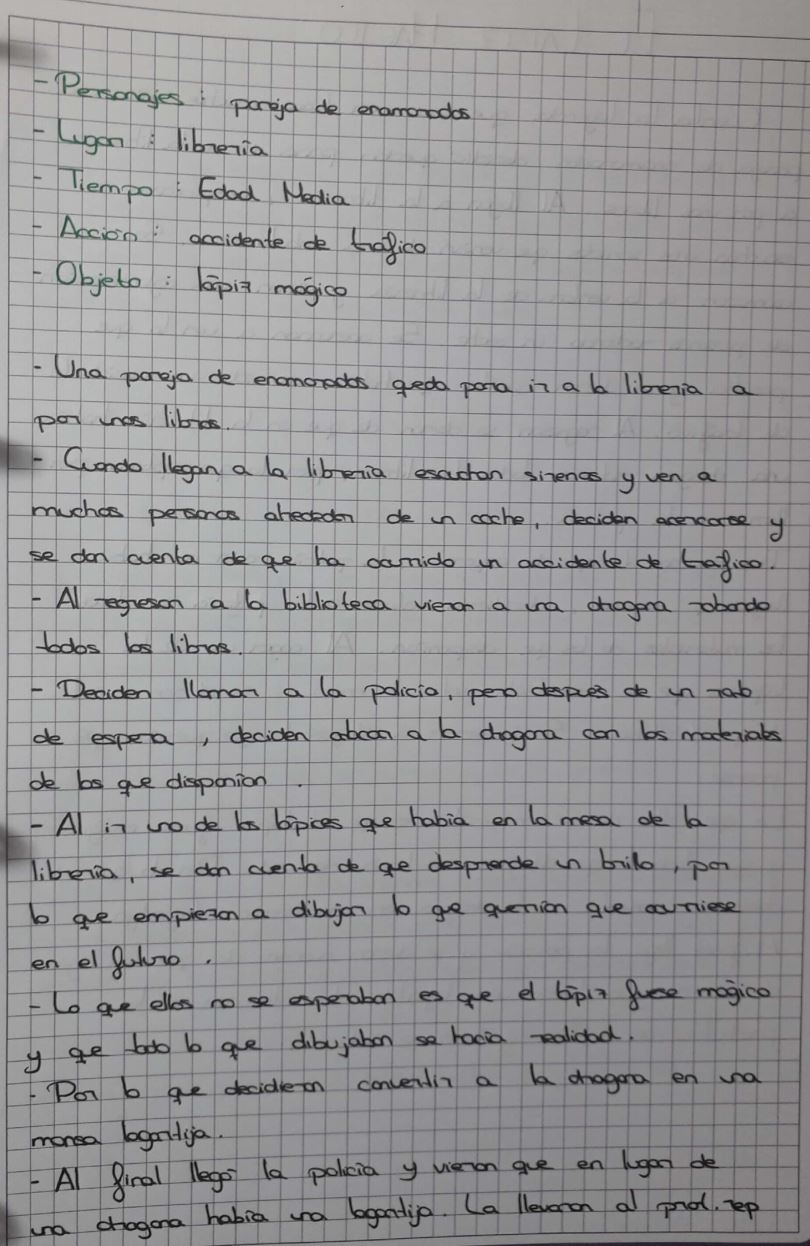 - Personajes : pareja de enamorados
- Lugar : librería
- Tiempo : Edad Media
- Acción : accidente de tráfico
- Objeto : lápiz mágico
- Una pareja de enamorados queda para ir a la libreria a
por unos libros.
- Cuando llegan a la librería escuchan sirenas y ven a
muchas personas alrededor de un coche, deciden acercarse y
se dan cuenta de que ha ocurrido un accidente de tráfico.
- Al regresar a la biblioteca vieron a una dragona robando
todos los libros.
- Deciden llamar a la policía, pero después de un rato
de espera, deciden atacar a la dragona con los materiales
de los que disponían.
- Al ir uno de los lápices que había en la mesa de la
librería, se dan cuenta de que desprende un brillo, por
lo que empiezan a dibujar lo que querían que ocurriese
en el futuro.
- Lo que ellos no se esperaban es que el lápiz fuese mágico
y que todo lo que dibujaban se hacía realidad.
- Por lo que decidieron convertir a la dragona en una
mansa lagartija.
- Al final llegó la policía y vieron que en lugar de
una dragona había una lagartija. La llevaron al prot. rep